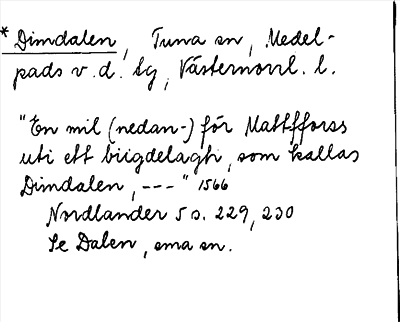 * Dimdalen, Tuna sn, Medel-
pads v. d. tg, Västernorrl. l.
"En mil (nedan-) för Mattfforss
uti ett biigdelagh, som kallas
Dimdalen, --- " 1566
Nordlander 5 s. 229, 230
Se Dalen, sma sn.